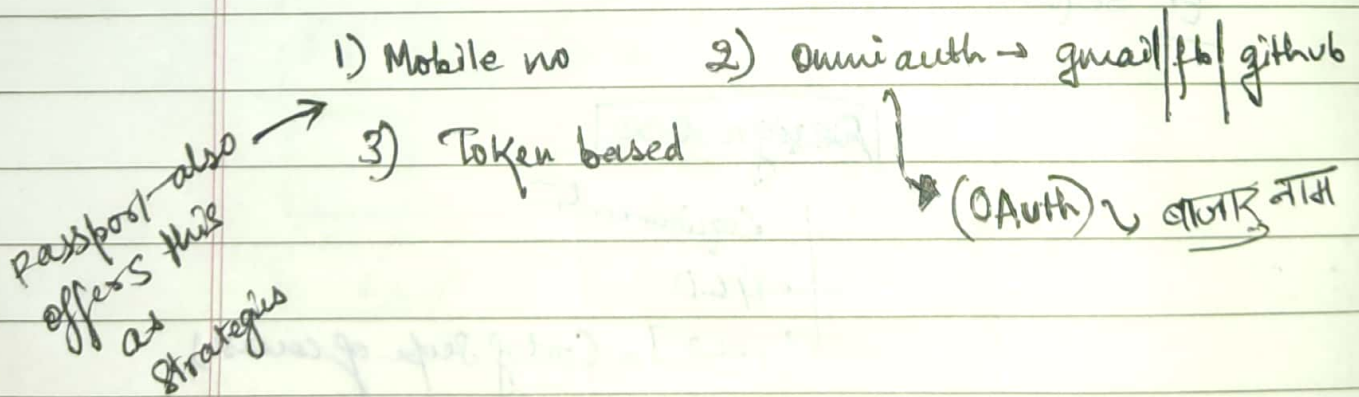 1) Mobile no 2) Omniauth → gmail/fb/github
3) Token based
(OAuth) ↘ बाजारू नाम
Passport also
offers this
as
strategies